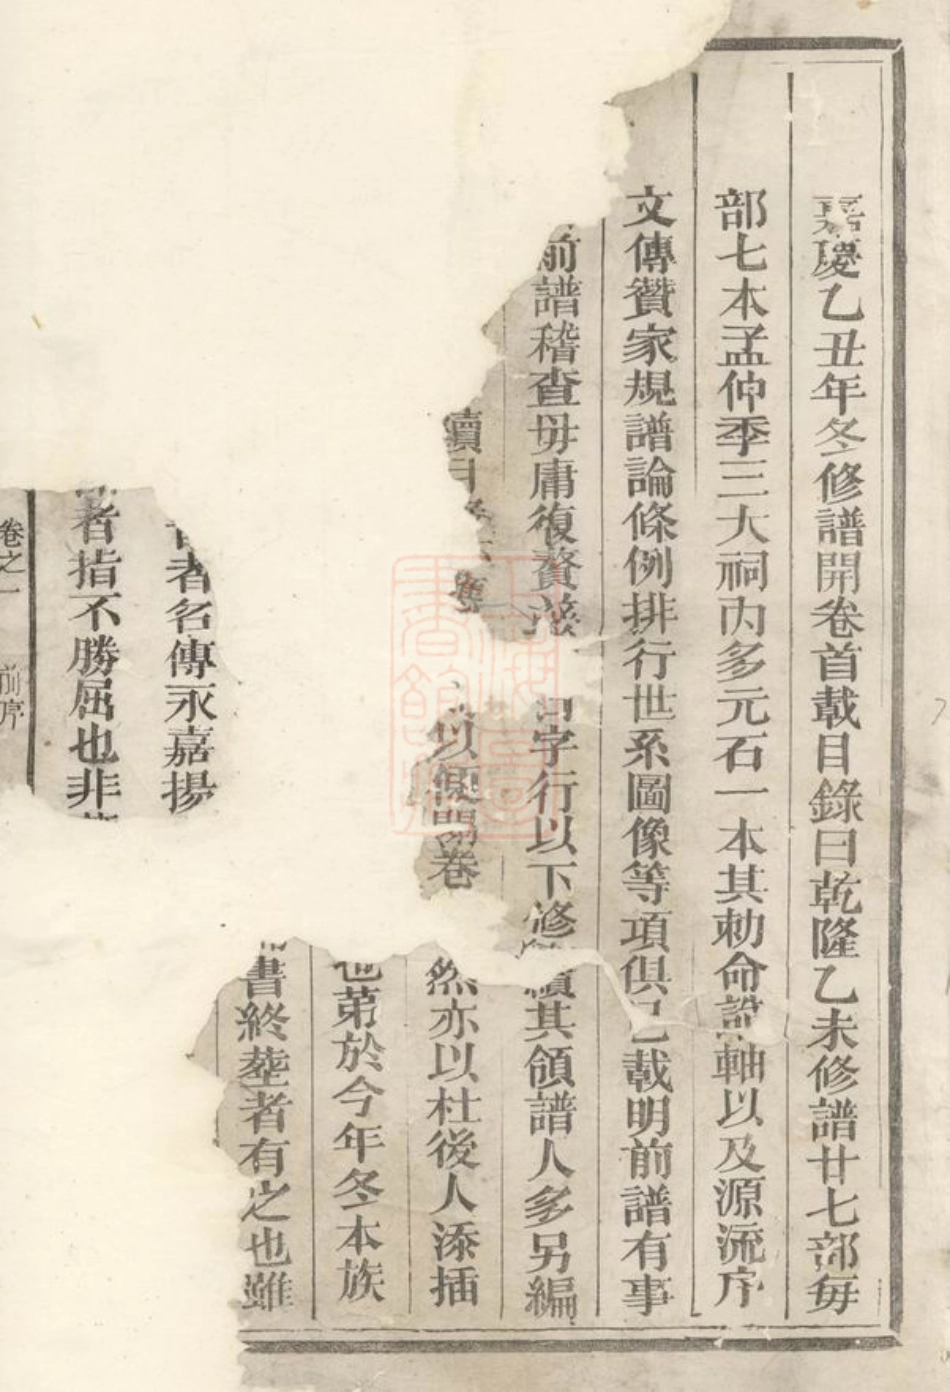 嘉慶乙丑年冬修譜開卷首載目錄曰乾隆乙未修譜廿七部毎
部七本孟仲季三大祠內多元石一本其勅命誥軸以及源流序
文傳贊家規譜論條例排行世系圖像等項俱已載明前譜有事
前譜稽查毋庸復贅茲字行以下修續其領譜人多另編
續以便開卷然亦以杜後人添揷
也第於今年冬本族
書終塟者有之也雖
者名傳永嘉揚
者指不勝屈也非
卷之一 前序